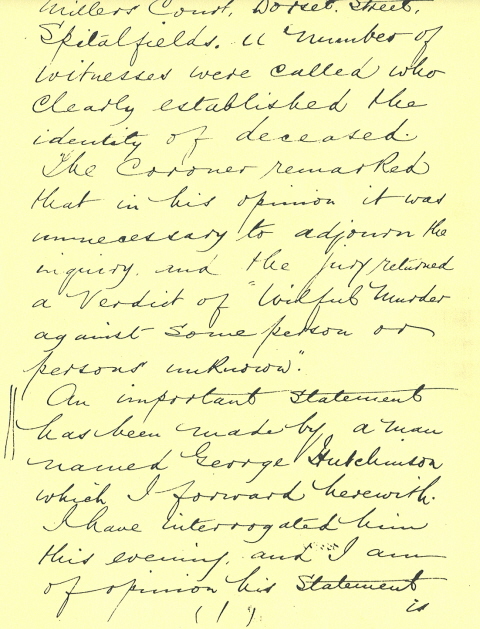 Millers Court, Dorset Street,
Spitalfields. A number of
witnesses were called who
clearly established the
identity of deceased.
The Coroner remarked
that in his opinion it was
unnecessary to adjourn the
inquiry. and the jury returned
a Verdict of "Wilful Murder
against some person or
persons unknown".
An important Statement
has been made by a man
named George Hutchinson
which I forward herewith.
I have interrogated him
this evening, and I am
of opinion his Statement
is
(1)